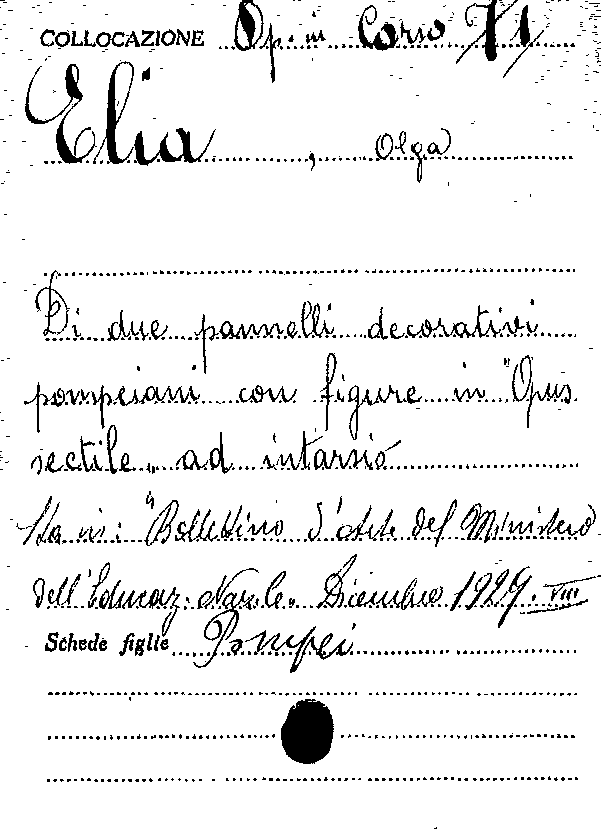 COLLOCAZIONE Op. in Corso 71
Elia, Olga
Di due pannelli decorativi
pompeiani con figure in "Opus
sectile" ad intarsio
Sta in: "Bollettino d'Arte del Ministero
dell'Educaz. Naz.le" Dicembre 1929. VIII
Schede figlie Pompei